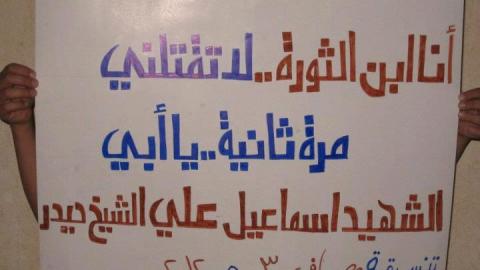 أنا ابن الثورة..لا تقتلني
مرة ثانية..يا أبي
الشهيد اسماعيل علي الشيخ حيدر
تنسيقية